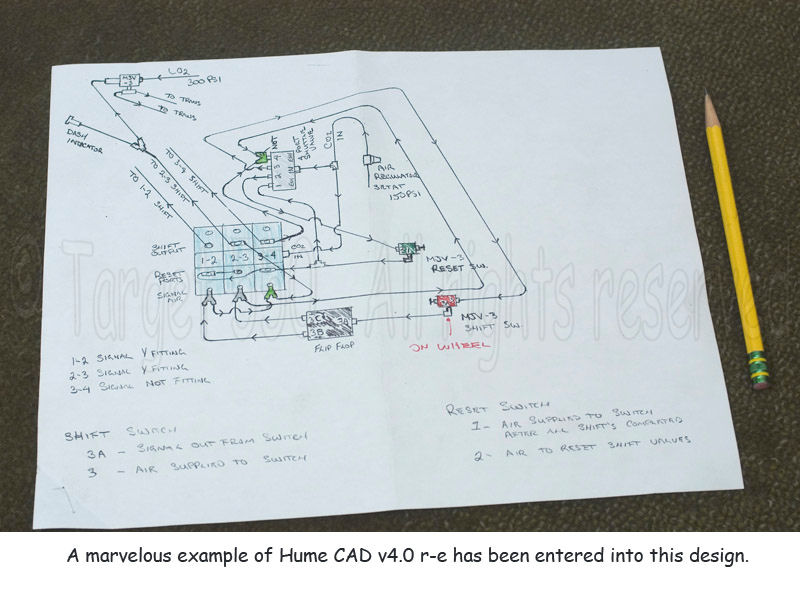 CO2
300 PSI
MJV
-3
TO TRANS
TO TRANS
DASH
INDICATOR
TO 3-4 SHIFT
TO 2-3 SHIFT
TO 1-2
SHIFT
NOT
4 PORT
SHUTTLE
VALVE
1 2 3 4
IN
CO2
IN
AIR
REGULATOR
150 PSI
SHIFT
OUTPUT
1-2 2-3 3-4
CO2
IN
RESET
PORTS
SIGNAL
AIR
MJV-3
RESET SW.
MJV-3
SHIFT SW.
ON WHEEL
3B
3A
FLIP FLOP
1-2 SIGNAL Y FITTING
2-3 SIGNAL Y FITTING
3-4 SIGNAL NOT FITTING
SHIFT SWITCH
3A - SIGNAL OUT FROM SWITCH
3 - AIR SUPPLIED TO SWITCH
RESET SWITCH
1- AIR SUPPLIED TO SWITCH
AFTER ALL SHIFT'S COMPLETED
2- AIR TO RESET SHIFT VALVES
All rights reserve
A marvelous example of Hume CAD v4.0 r-e has been entered into this design.